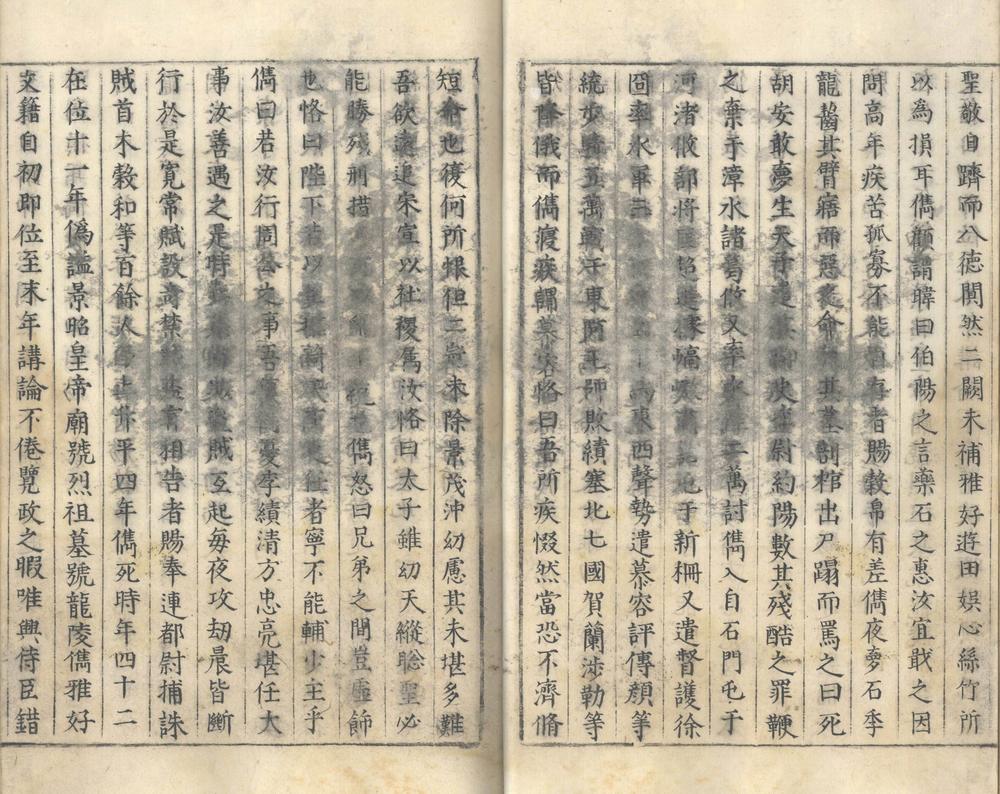 聖敬自躋而八德闕然二闕未補雅好遊田娛心絲竹所
以為損耳儁顧謂暐曰伯陽之言藥石之惠汝宜戢之因
問高年疾苦孤寡不能自存者賜穀帛有差儁夜夢石季
龍齧其臂寤而惡之命其墓剖棺出尸蹋而罵之曰死
胡安敢夢生天子遣其御史尉約陽數其殘酷之罪鞭
之棄于漳水諸葛攸又率水二萬討儁入自石門屯于
河渚攸部將匡超據嵪磝屯于新柵又遣督護徐
冏率水軍三為東西聲勢遣慕容評傅顏等
統步騎五萬戰于東阿王師敗績塞北七國賀蘭涉勒等
皆降俄而儁寢疾謂慕容恪曰吾所疾惙然當恐不濟脩
短命也復何所恨但二寇未除景茂沖幼慮其未堪多難
吾欲遠追宋宣以社稷屬汝恪曰太子雖幼天縱聰聖必
能勝殘刑措統也儁怒曰兄弟之間豈虛飾
也恪曰陛下若以臣堪荷天下之任者寧不能輔少主乎
儁曰若汝行周公之事吾復何憂李績清方忠亮堪任大
事汝善遇之是時賊互起每夜攻劫晨皆斷
行於是寬常賦設奇禁有相告者賜奉連都尉捕誅
賊首木穀和等百餘人升平四年儁死時年四十二
在位十一年偽謚景昭皇帝廟號烈祖墓號龍陵儁雅好
文籍自初即位至末年講論不倦覽政之暇唯興侍臣錯